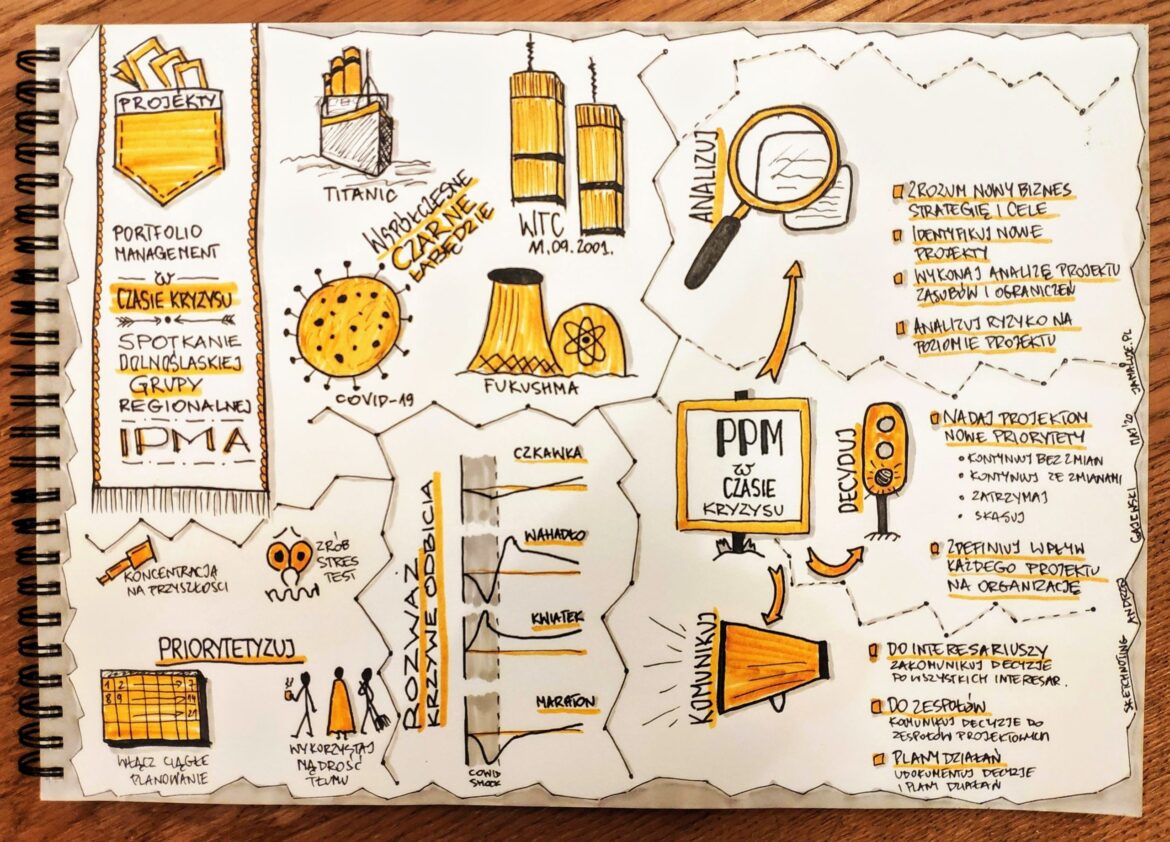 PROJEKTY
PORTFOLIO
MANAGEMENT
W
CZASIE KRYZYSU
SPOTKANIE
DOLNOŚLASKIEJ
GRUPY
REGIONALNEJ
IPMA
TITANIC
WTC
11.09.2001.
WSPÓŁCZESNE
CZARNE
ŁABĘDZIE
COVID-19
FUKUSHMA
ANALIZUJ
ZROZUM NOWY BIZNES
STRATEGIĘ I CELE
IDENTYFIKUJ NOWE
PROJEKTY
WYKONAJ ANALIZĘ PROJEKTU
ZASOBÓW I OGRANICZEŃ
ANALIZUJ RYZYKO NA
POZIOMIE PROJEKTU
PPM
W
CZASIE
KRYZYSU
DECYDUJ
NADAJ PROJEKTOM
NOWE PRIORYTETY
• KONTYNUUJ BEZ ZMIAN
• KONTYNUUJ ZE ZMIANAMI
• ZATRZYMAJ
• SKASUJ
ZDEFINIUJ WPŁYW
KAŻDEGO PROJEKTU
NA ORGANIZACJĘ
KOMUNIKUJ
DO INTERESARIUSZY
ZAKOMUNIKUJ DECYZJE
PO WSZYSTKICH INTERESAR.
DO ZESPOŁÓW
KOMUNIKUJ DECYZJE DO
ZESPOŁÓW PROJEKTOWYCH
PLANY DZIAŁAŃ
UDOKUMENTUJ DECYZJE
I PLANY DZIAŁAŃ
KONCENTRACJA
NA PRZYSZŁOŚCI
ZRÓB
STRES
TEST
PRIORYTETYZUJ
1 2 7
8 9 14
21
WŁĄCZ CIĄGŁE
PLANOWANIE
WYKORZYSTAJ
MĄDROŚĆ
TŁUMU
ROZWAŻ
KRZYWE ODBICIA
CZKAWKA
WAHADŁO
KWIATEK
MARATON
COVID
SHOCK
SKETCHNOTING ANDRZEJ GAJEWSKI MAJ '20 JAMALUJE.PL